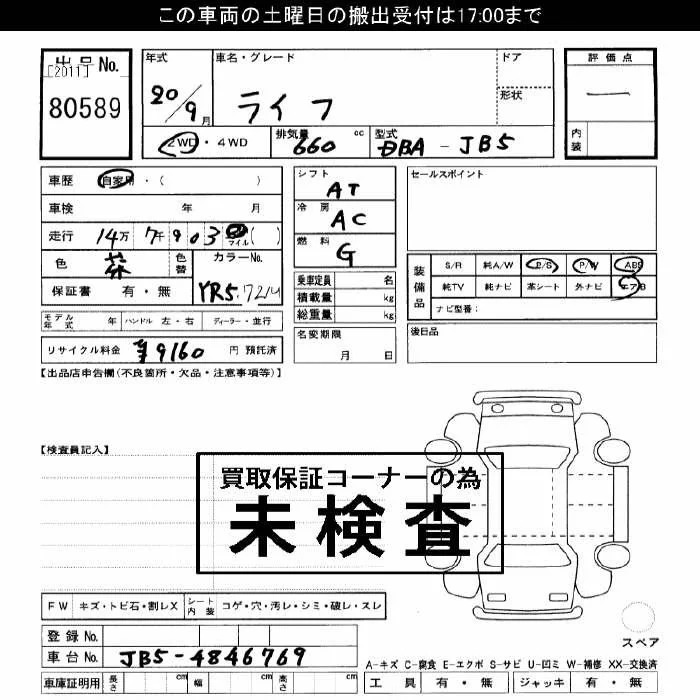 この車両の土曜日の搬出受付は17:00まで
出品No.
[2011]
80589
年式 車名・グレード ドア
20/9月 ライフ
形状
2WD・4WD 排気量 660 cc 型式 DBA - JB5
評価点
一
内装
車歴 自家用・( )
車検 年 月
走行 14万 7千 903 マイル ( )
色 茶 色替 カラーNo.
保証書 有・無 YR5
モデル年式 年 ハンドル 左・右 ディーラー・並行
リサイクル料金 ¥9160 円 預託済
シフト AT
冷房 AC
燃料 G
乗車定員 名
積載量 kg
総重量 kg
名変期限
月 日
セールスポイント
装備品 S/R 純A/W P/S P/W ABS
純TV 純ナビ 革シート 外ナビ エアB
ナビ型番:
後日品
【出品店申告欄(不良箇所・欠品・注意事項等)】
【検査員記入】
買取保証コーナーの為
未検査
FW キズ・トビ石・割レX シート内装 コゲ・穴・汚レ・シミ・破レ・スレ
登録No.
車台No. JB5-4846769
車庫証明用 長さ cm 幅 cm 高さ cm
スペア
A-キズ C-腐食 E-エクボ S-サビ U-凹ミ W-補修 XX-交換済
工具 有・無 ジャッキ 有・無